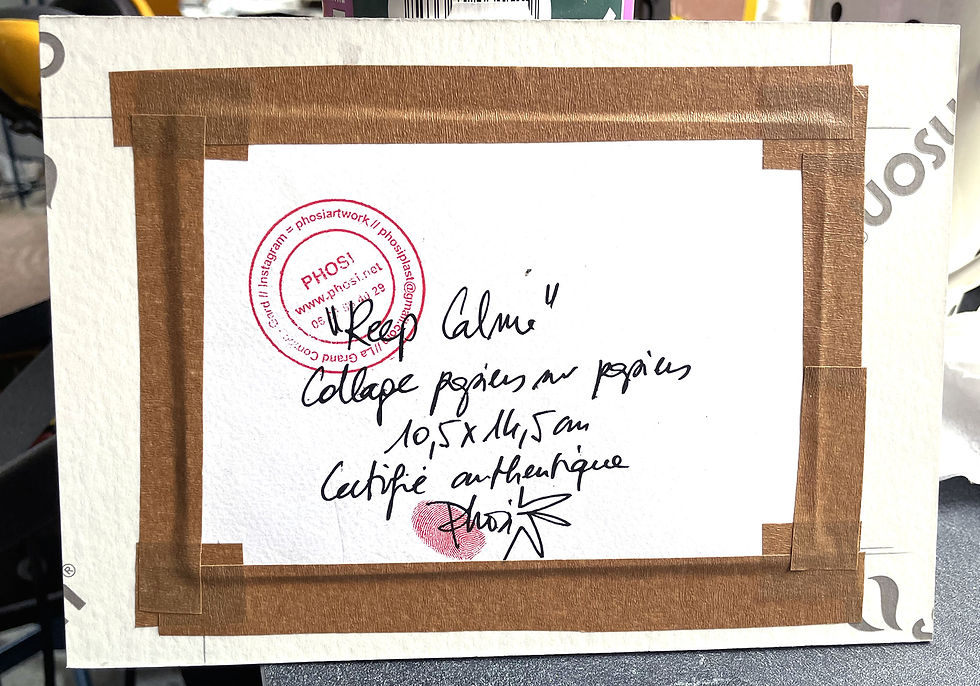 Instagram = phosiartwork // phosiplast@gmail.com // La Grand Combe - Gard //
PHOSI
www.phosi.net
29
"Keep Calme"
Collage papiers sur papiers
10,5 x 14,5 cm
Certifié authentique
Phosi
®